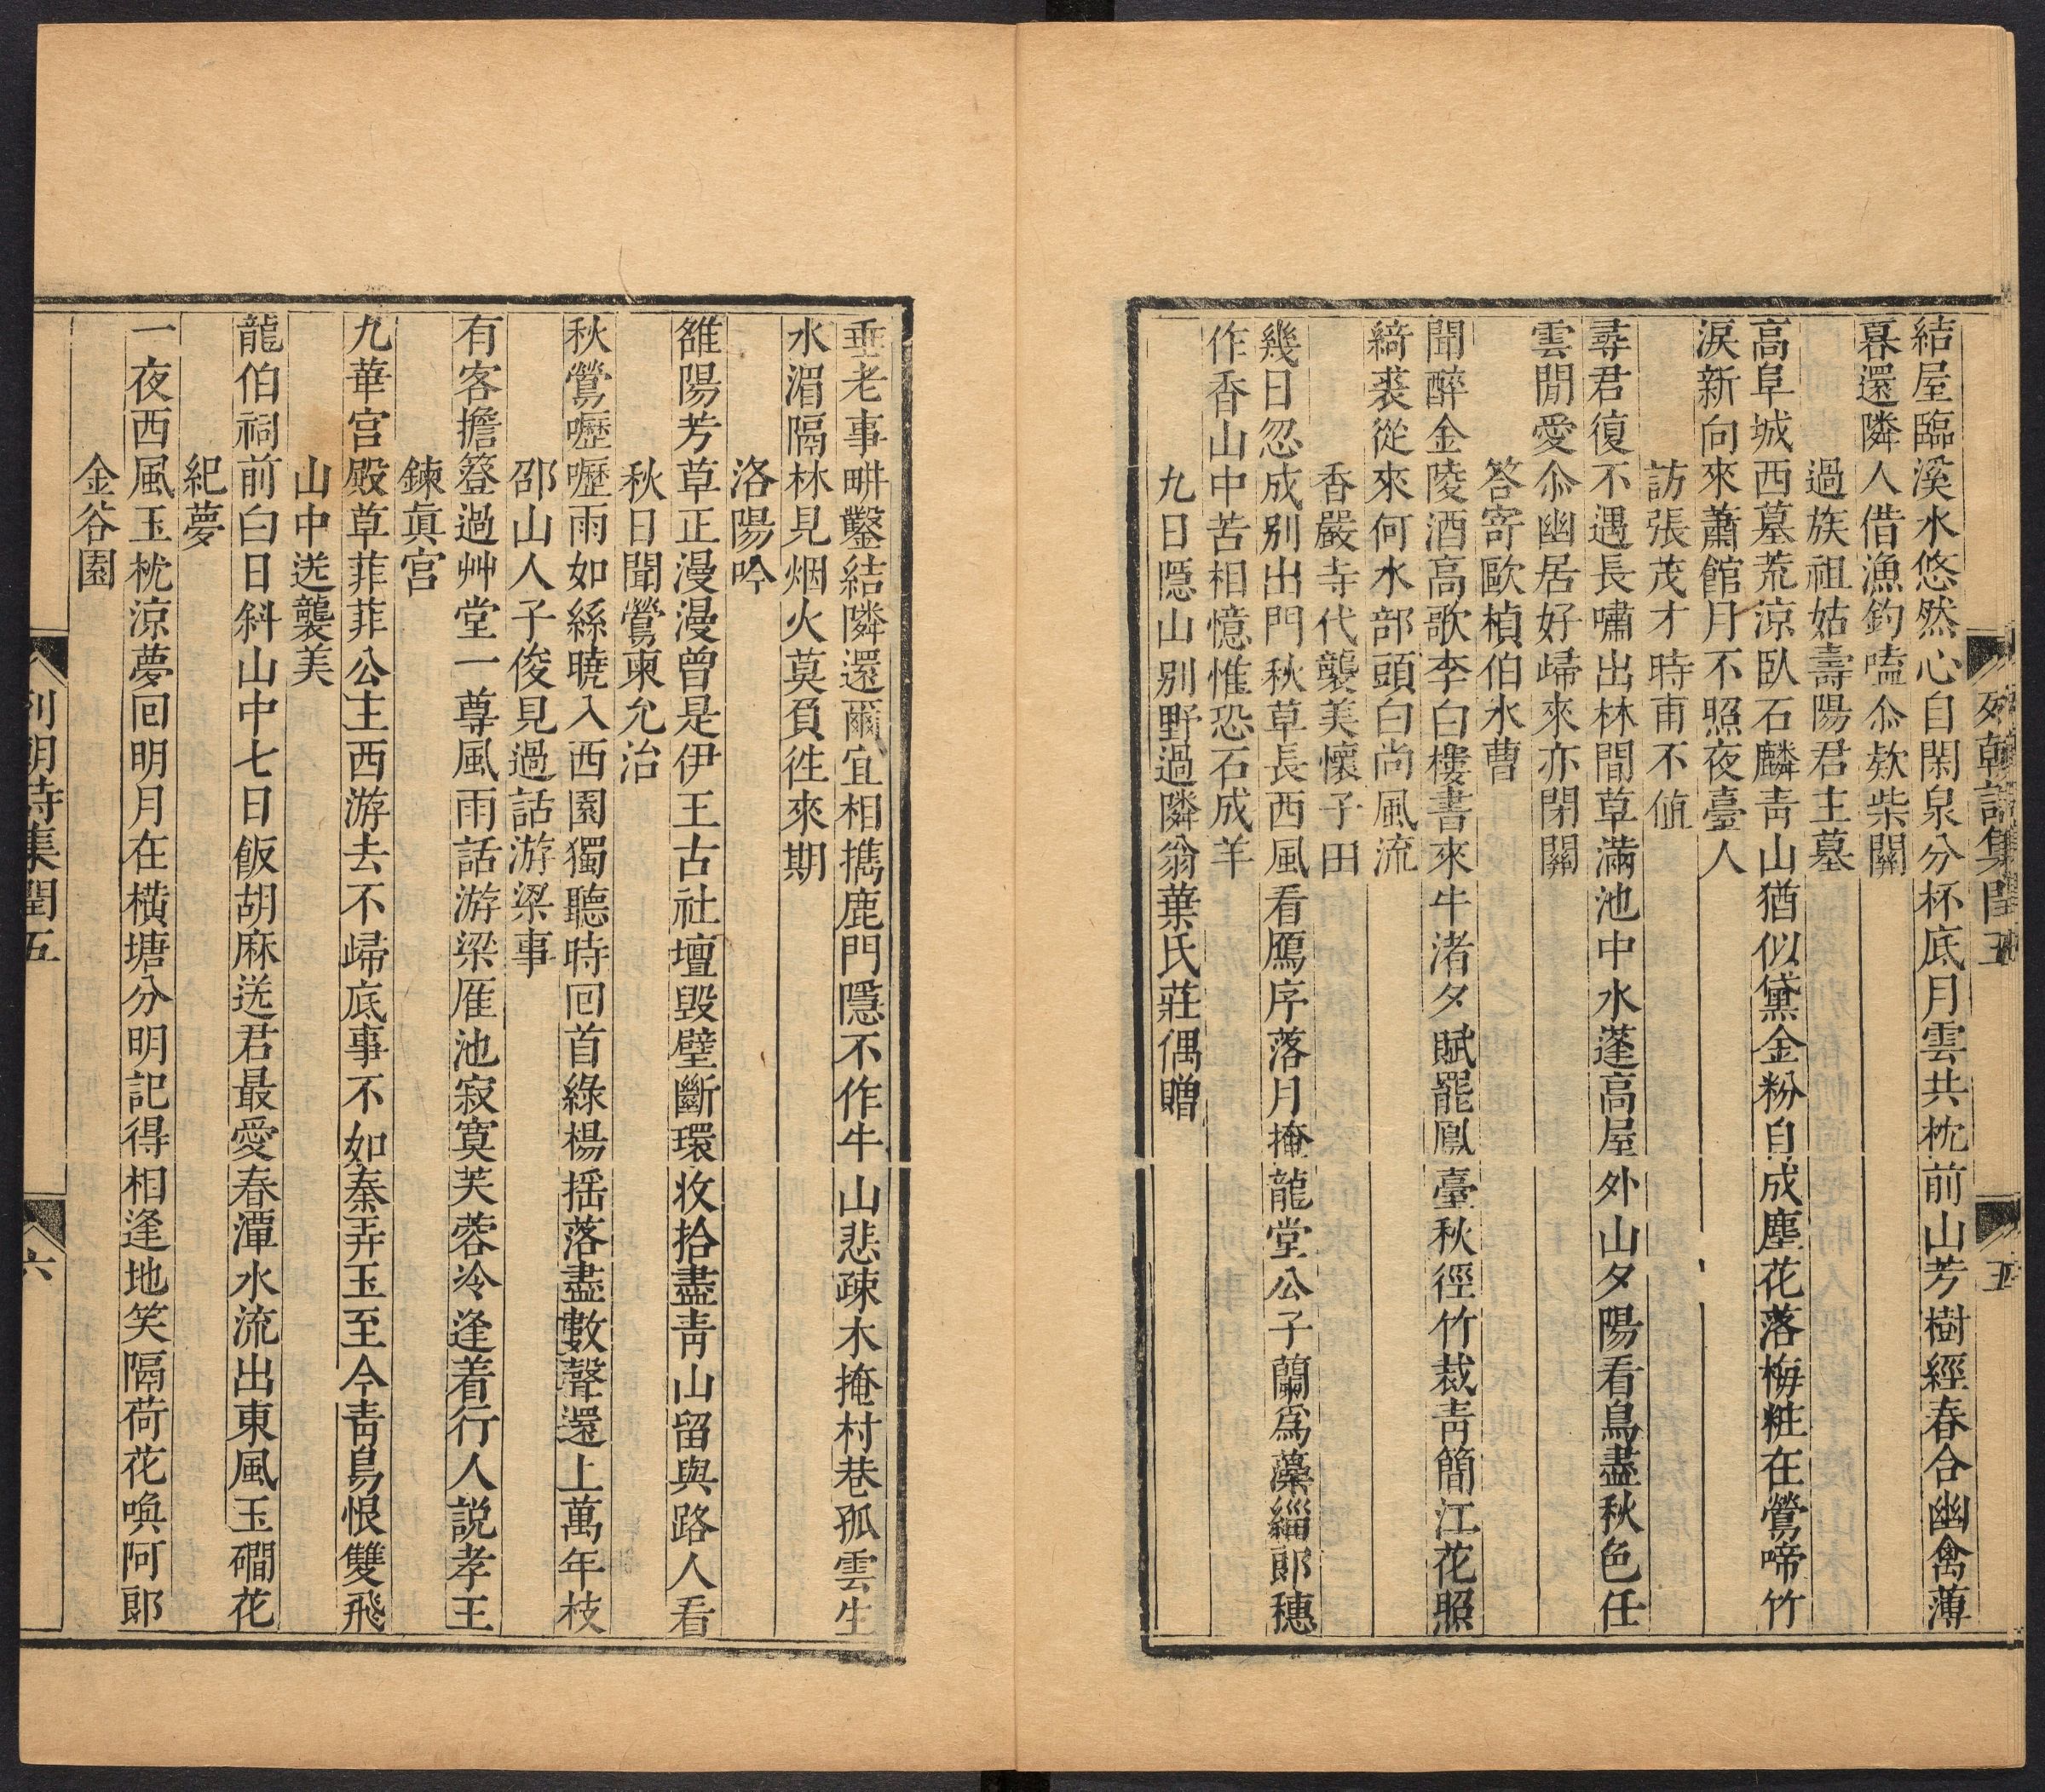 列朝詩集閏五
五
結屋臨溪水悠然心自閑泉分杯底月雲共枕前山芳樹經春合幽禽薄
暮還隣人借漁釣嗑尒欵柴關
過族祖姑壽陽君主墓
高阜城西墓荒涼臥石麟靑山猶似黛金粉自成塵花落梅粧在鶯啼竹
淚新向來蕭館月不照夜臺人
訪張茂才時甫不値
尋君復不遇長嘯出林間草滿池中水蓬高屋外山夕陽看鳥盡秋色任
雲閒愛尒幽居好歸來亦閉關
答寄歐楨伯水曹
聞醉金陵酒高歌李白樓書來牛渚夕賦罷鳳臺秋徑竹裁靑簡江花照
綺裘從來何水部頭白尚風流
香嚴寺代襲美懷子田
幾日忽成別出門秋草長西風看鴈序落月掩龍堂公子蘭爲藻緇郞穗
作香山中苦相憶惟恐石成羊
九日隱山別野過隣翁葉氏莊偶贈
垂老事畊鑿結隣還爾宜相擕鹿門隱不作牛山悲疎木掩村巷孤雲生
水湄隔林見烟火莫負徃來期
洛陽吟
雒陽芳草正漫漫曾是伊王古社壇毀壁斷環收拾盡靑山留與路人看
秋日聞鶯柬允治
秋鶯嚦嚦雨如絲曉入西園獨聽時回首綠楊揺落盡數聲還上萬年枝
邵山人子俊見過話游梁事
有客擔簦過艸堂一尊風雨話游梁雁池寂寞芙蓉冷逢着行人説孝王
鍊眞宮
九華宮殿草菲菲公主西游去不歸底事不如秦弄玉至今靑鳥恨雙飛
山中送襲美
龍伯祠前白日斜山中七日飯胡麻送君最愛春潭水流出東風玉磵花
紀夢
一夜西風玉枕涼夢回明月在橫塘分明記得相逢地笑隔荷花喚阿郞
金谷園
列朝詩集閏五
六